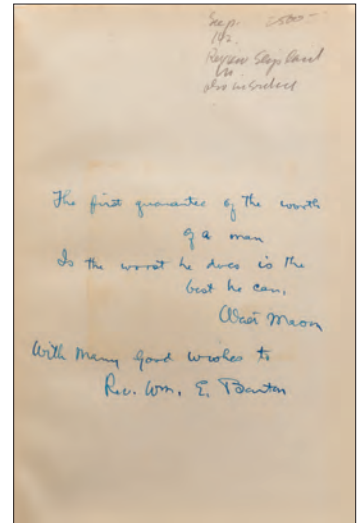 The first guarantee of the worth
of a man
Is the worst he does is the
best he can.
Walt Mason
With many good wishes to
Rev. Wm. E. Barton